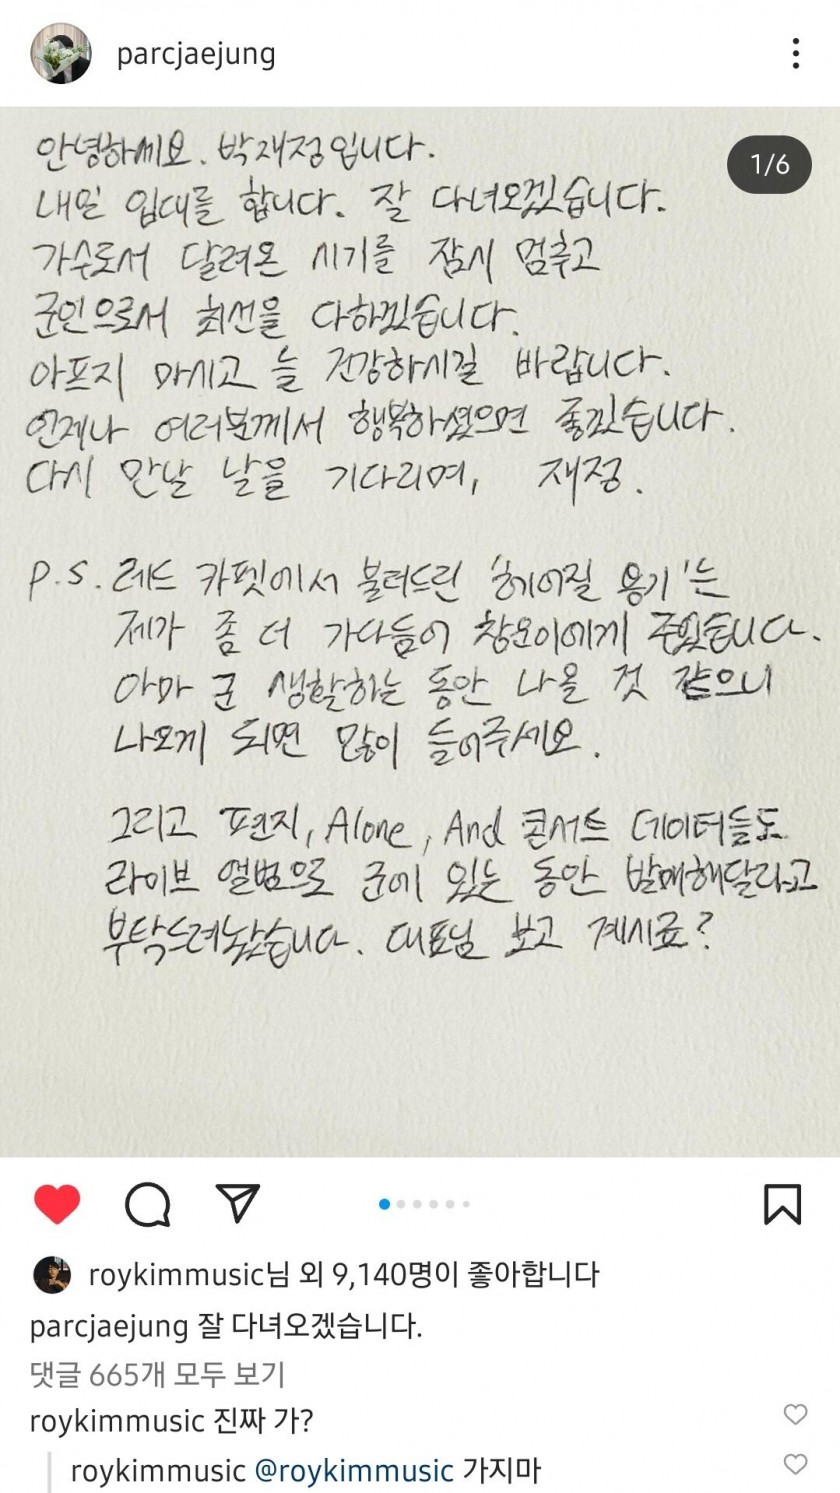 parcjaejung
1/6
안녕하세요. 박재정입니다.
내일 입대를 합니다. 잘 다녀오겠습니다.
가수로서 달려온 시기를 잠시 멈추고
군인으로서 최선을 다하겠습니다.
아프지 마시고 늘 건강하시길 바랍니다.
언제나 여러분께서 행복하셨으면 좋겠습니다.
다시 만날 날을 기다리며, 재정.
P.S. 레드 카펫에서 불러드린 '헤어질 용기'는
제가 좀 더 가다듬어 창모이에게 주었습니다.
아마 군 생활하는 동안 나올 것 같으니
나오게 되면 많이 들어주세요.
그리고 편지, Alone, And 콘서트 데이터들도
라이브 앨범으로 군에 있는 동안 발매해달라고
부탁드려놨습니다. 대표님 보고 계시죠?
roykimmusic님 외 9,140명이 좋아합니다
parcjaejung 잘 다녀오겠습니다.
댓글 665개 모두 보기
roykimmusic 진짜 가?
roykimmusic @roykimmusic 가지마